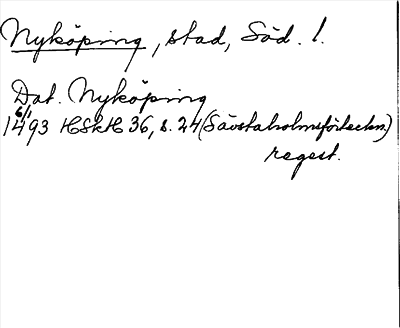 Nyköping, stad, Söd. l.
Dat. Nyköping
6/1
1493 HSkH 36, s. 24 (Sävstaholmsförteckn.)
regest.